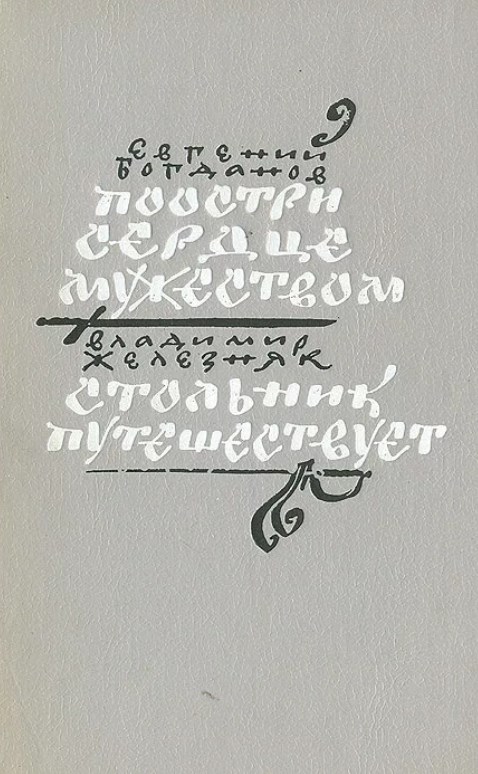 ЕВГЕНИЙ
БОГДАНОВ
ПООСТРИ
СЕРДЦЕ
МУЖЕСТВОМ
ВЛАДИМИР
ЖЕЛЕЗНЯК
СТОЛЬНИК
ПУТЕШЕСТВУЕТ